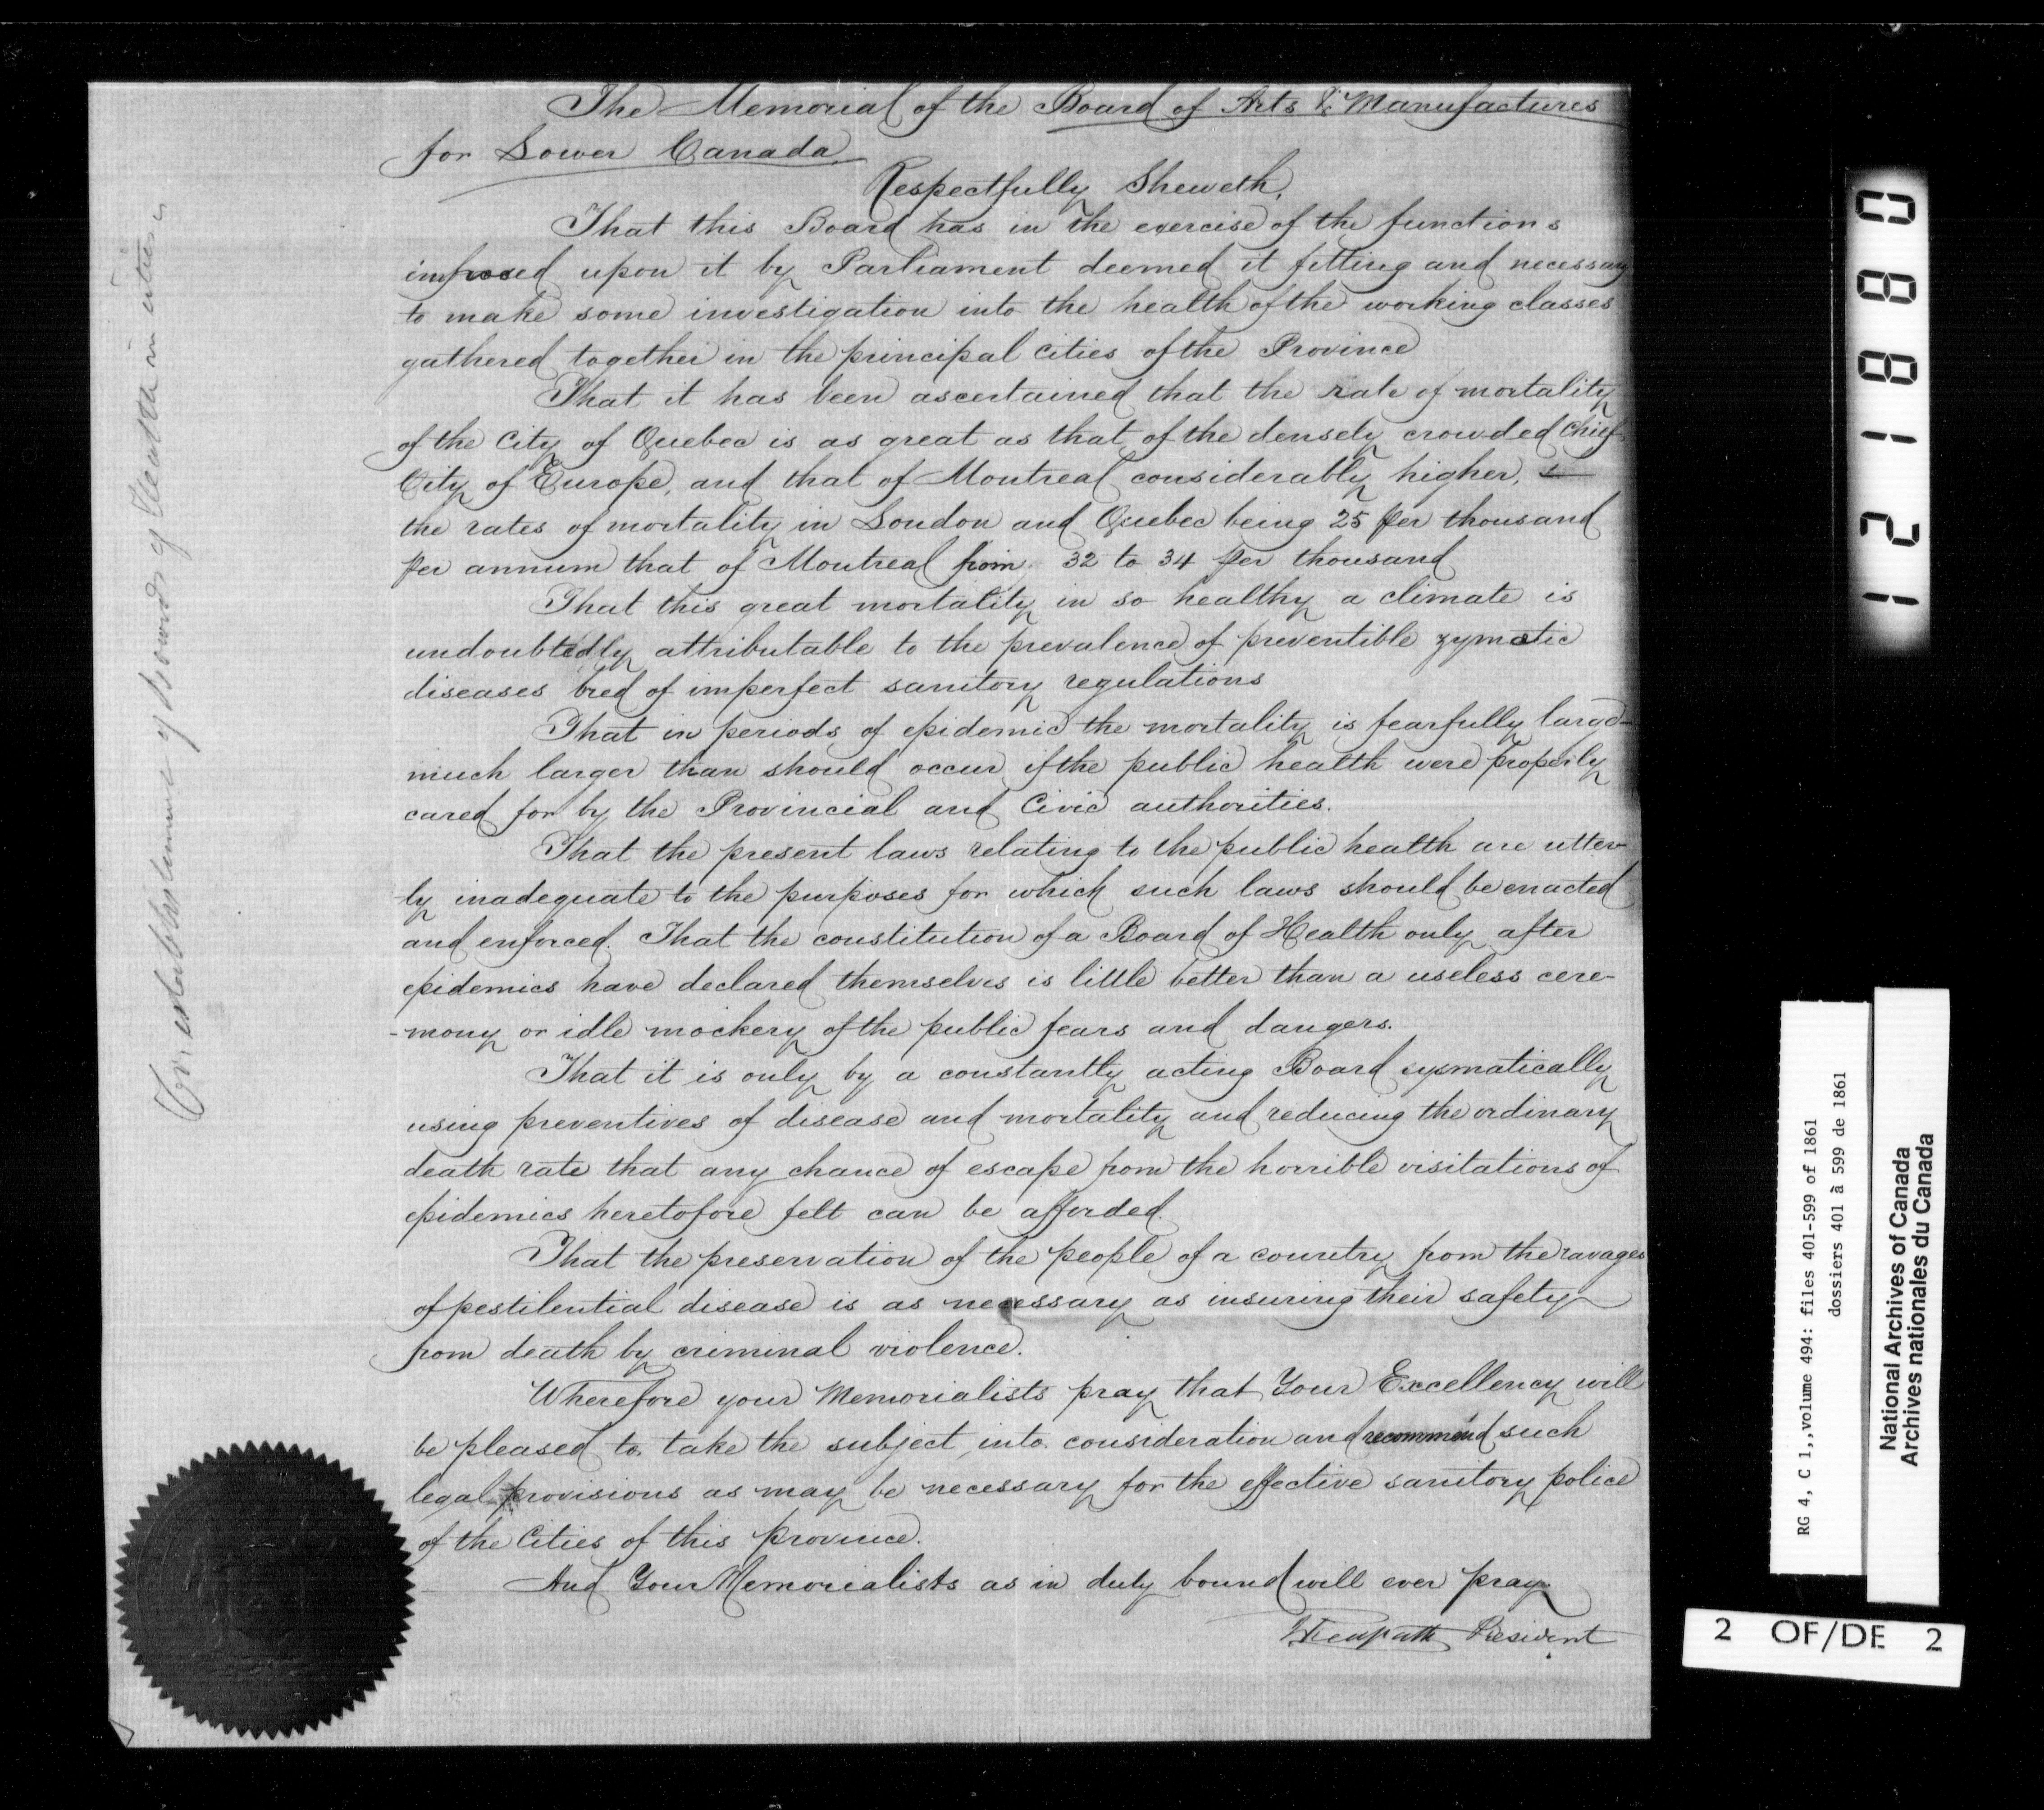 The Memorial of the Board of Arts & Manufactures
for Lower Canada
Respectfully Sheweth,
That this Board has in the exercise of the functions
imposed upon it by Parliament deemed it fitting and necessary
to make some investigation into the health of the working classes
gathered together in the principal Cities of the Province
That it has been ascertained that the rate of mortality
of the City of Quebec is as great as that of the densely crowded Chief
City of Europe, and that of Montreal considerably higher,
the rates of mortality in London and Quebec being 25 per thousand
per annum that of Montreal from 32 to 34 per thousand
That this great mortality in so healthy a climate is
undoubtedly attributable to the prevalence of preventible zymotic
diseases bred of imperfect sanitory regulations
That in periods of epidemic the mortality is fearfully large-
much larger than should occur if the public health were properly
cared for by the Provincial and Civic authorities.
That the present laws relating to the public health are utter-
ly inadequate to the purposes for which such laws should be enacted
and enforced. That the constitution of a Board of Health only after
epidemics have declared themselves is little better than a useless cere-
-mony or idle mockery of the public fears and dangers.
That it is only by a constantly acting Board sysmatically
using preventives of disease and mortality and reducing the ordinary
death rate that any chance of escape from the horrible visitations of
epidemics heretofore felt can be afforded.
That the preservation of the people of a country from the ravages
of pestilential disease is as necessary as insuring their safety
from death by criminal violence.
Wherefore your Memorialists pray that Your Excellency will
be pleased to take the subject into consideration and recommend such
legal provisions as may be necessary for the effective sanitory police
of the Cities of this province.
And Your Memorialists as in duty bound will ever pray
President
of Boards of Health in cities
121880
RG 4, C 1,,volume 494: files 401-599 of 1861
dossiers 401 à 599 de 1861
National Archives of Canada
Archives nationales du Canada
2 OF/DE 2